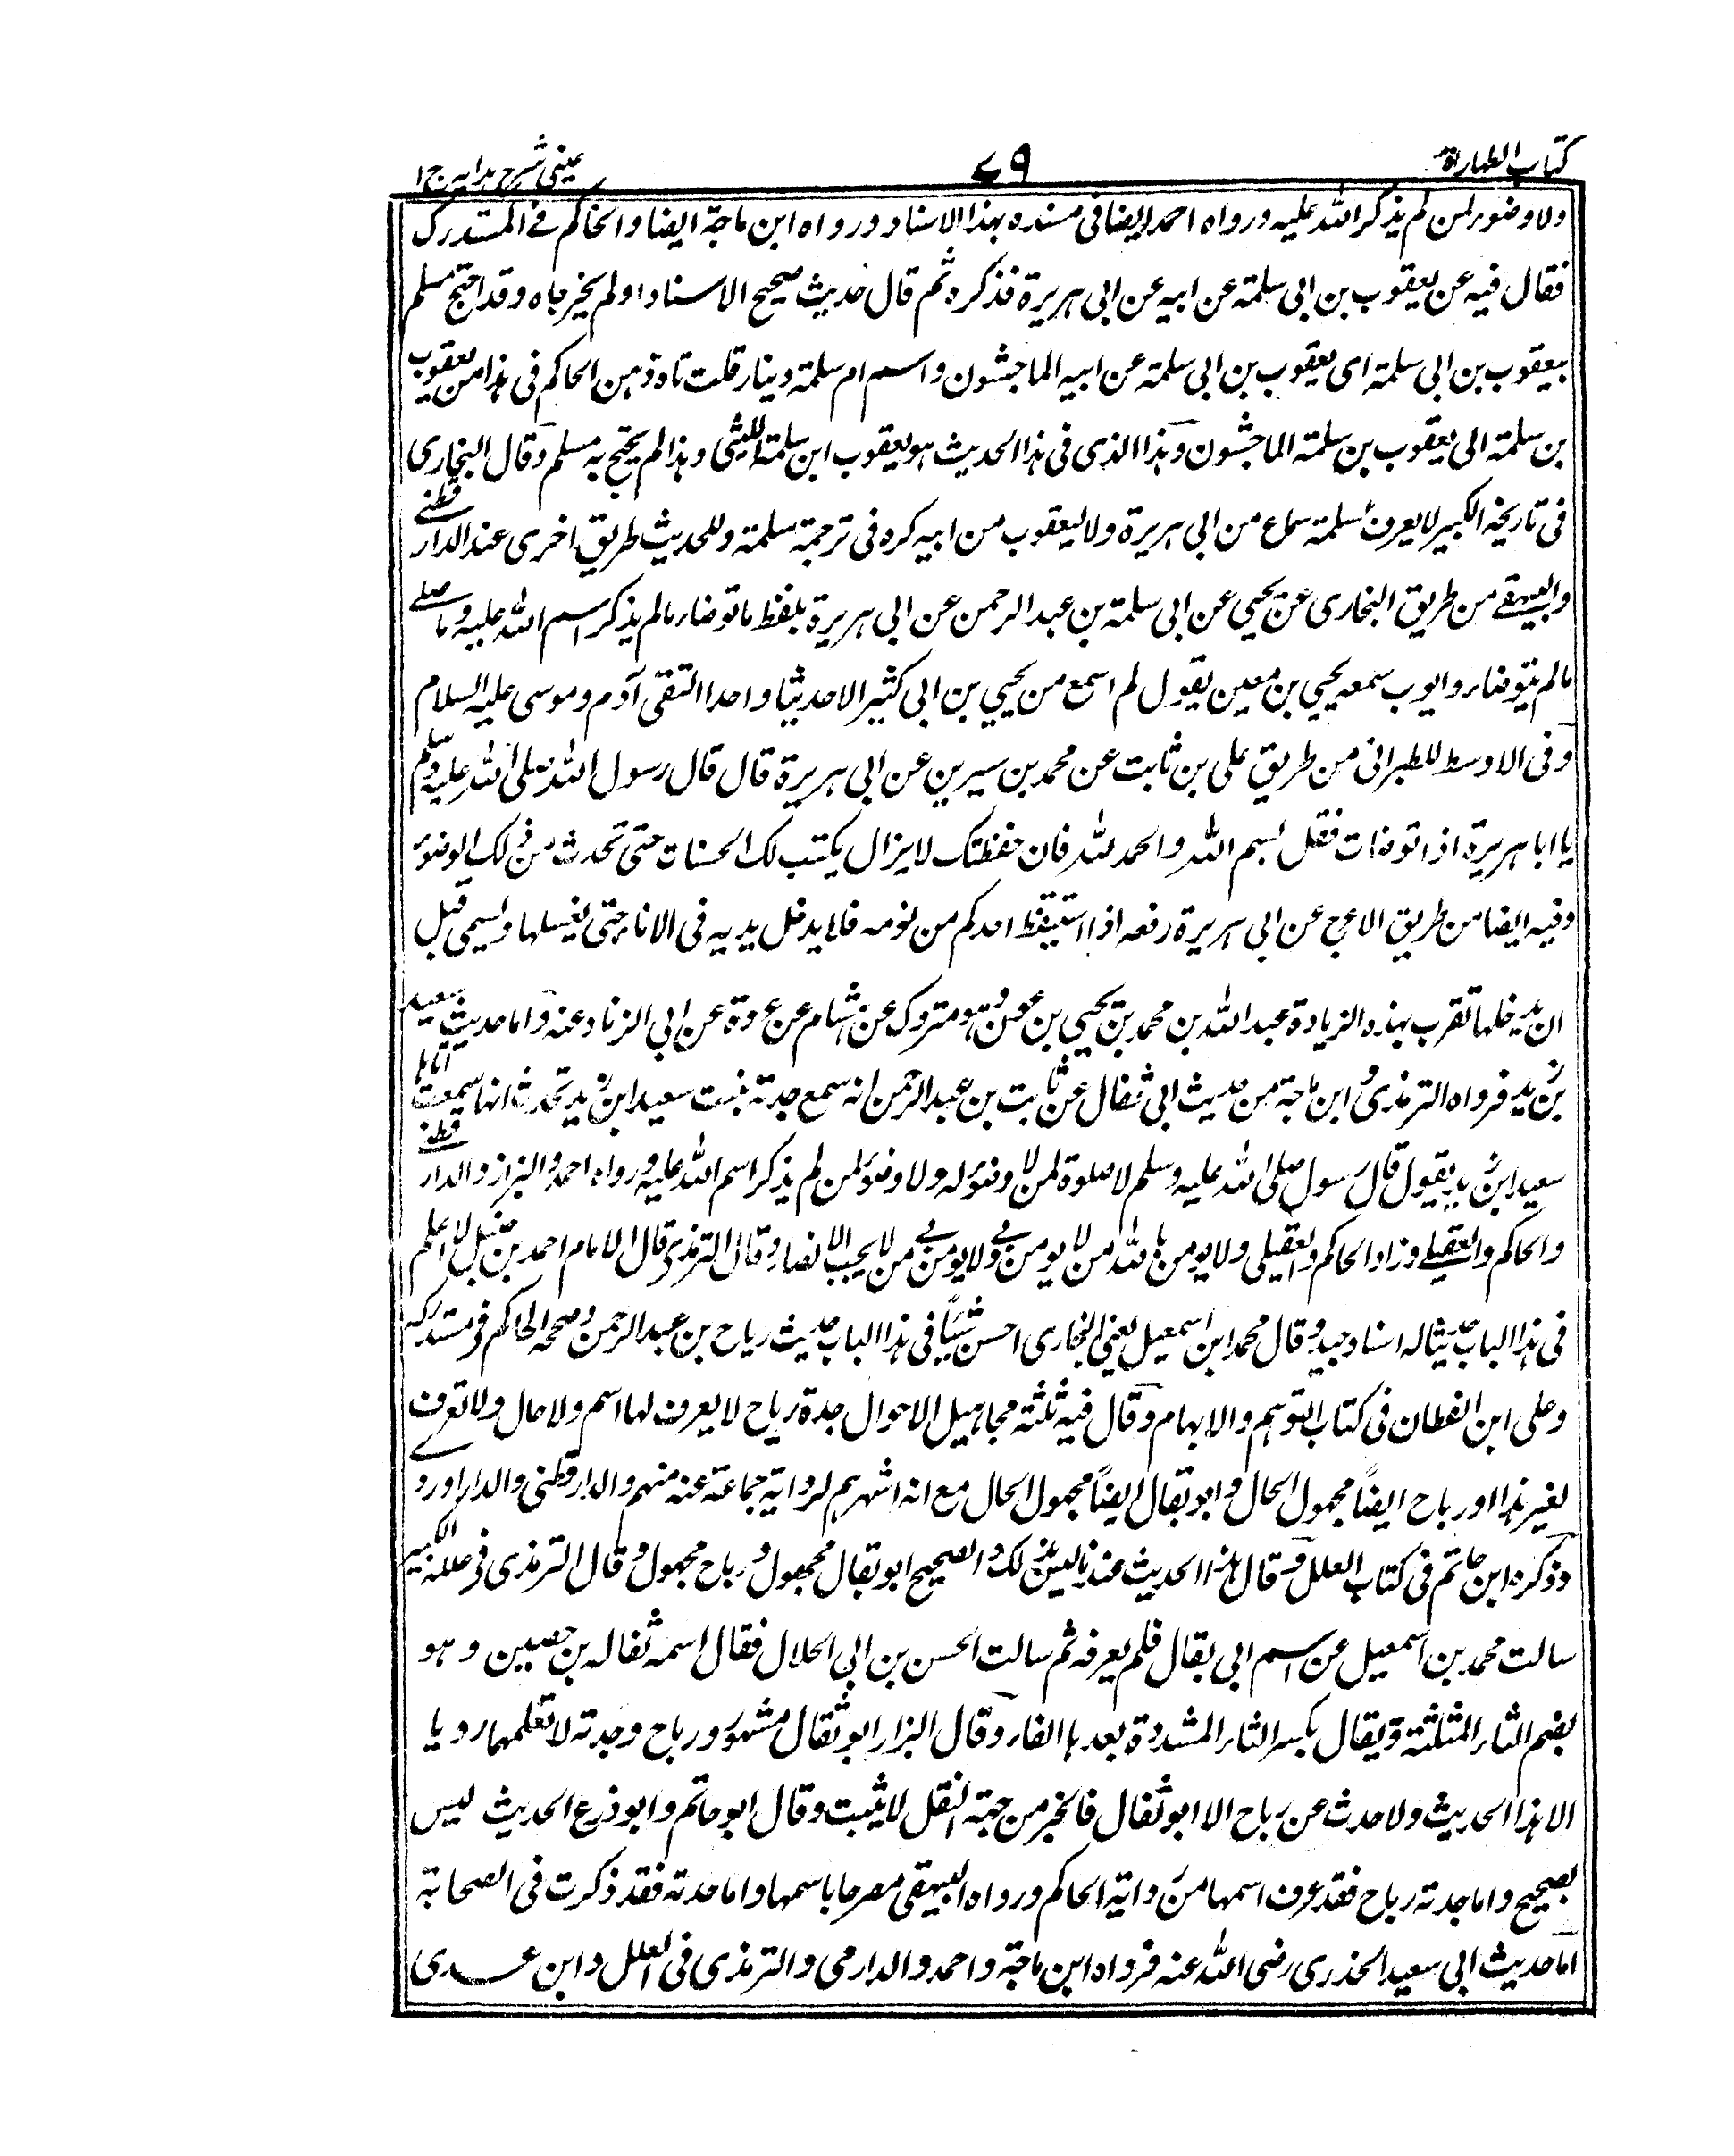 كتاب الطهارة
٧٩
عينى شرح هدايه ج ١
ولا وضوء لمن لم يذكر الله عليه ورواه احمد ايضا فى مسنده بهذا الاسناد ورواه ابن ماجة ايضا والحاكم فى المستدرك
فقال فيه عن يعقوب بن ابى سلمة عن ابيه عن ابى هريرة فذكره ثم قال حديث صحيح الاسناد اولم يخرجاه وقد احتج مسلم
بيعقوب بن ابى سلمة اى يعقوب بن ابى سلمة عن ابيه الماجشون واسم ام سلمة دينار قلت تاه ذهن الحاكم فى هذا من يعقوب
بن سلمة الى يعقوب بن سلمة الماجشون وهذا الذى فى هذا الحديث هو يعقوب ابن سلمة الليثى وهذا لم يحتج به مسلم وقال البخارى
فى تاريخه الكبير لا يعرف لسلمة سماع من ابى هريرة ولا ليعقوب من ابيه كره فى ترجمة سلمة وللحديث طريق اخرى عند الدار قطنى
والبيهقى من طريق البخارى عن يحيى عن ابى سلمة بن عبد الرحمن عن ابى هريرة بلفظ ما توضاء ما لم يذكر اسم الله عليه وما صلى
ما لم يتوضاء وايوب سمعه يحيي بن معين يقول لم اسمع من يحيي بن ابى كثير الا حديثا واحدا التقى آدم وموسى عليه السلام
وفى الاوسط للطبرانى من طريق على بن ثابت عن محمد بن سيرين عن ابى هريرة قال قال رسول الله صلى الله عليه وسلم
يا ابا هريرة اذا توضات فقل بسم الله والحمد لله فان حفظتك لا يزال يكتب لك الحسنات حتى تحدث من ذلك الوضوء
وفيه ايضا من طريق الاعرج عن ابى هريرة رفعه اذا استيقظ احدكم من نومه فلا يدخل يديه فى الاناء حتى يغسلها ويسمى قبل
ان يدخلها تقرب بهذه الزيادة عبد الله بن محمد بن يحيى بن عروة وهو متروك عن هشام عن عروة عن ابى الزناد عنه واما حديث سعيد
بن زيد فرواه الترمذى وابن ماجة من حديث ابى ثفال عن ثابت بن عبد الرحمن انه سمع جدته بنت سعيد ابن زيد تحدث انها سمعت اباها
سعيد ابن زيد يقول قال رسول صلى الله عليه وسلم لا صلوة لمن لا وضوء له ولا وضوء لمن لم يذكر اسم الله عليه ورواه احمد والبزاز والدار قطنى
والحاكم والعقيلى وزاد الحاكم والعقيلى ولا يومن بالله من لا يومن بى ولا يومن بى من لا يحب الانصار وقال الترمذى قال الامام احمد بن حنبل لا اعلم
فى هذا الباب حديثا له اسناد جيد وقال محمد ابن اسمعيل يعنى البخارى احسن شيئًا فى هذا الباب حديث رباح بن عبد الرحمن وصححه الحاكم فى مستدركه
وعلى ابن القطان فى كتاب التوهم والابهام وقال فيه ثلثة مجاهيل الاحوال جدة رباح لا يعرف لها اسم ولا حال ولا تعرف
لغير هذا اورباح ايضًا مجهول الحال وابو ثقال ايضًا مجهول الحال مع انه اشهرهم لرواية جماعة عنه منهم والدارقطنى والدراوردى
وذكره ابن حاتم فى كتاب العلل وقال هذا الحديث عندنا ليس بذلك والصحيح ابو ثقال مجهول ورباح مجهول وقال الترمذى فى علله الكبير
سالت محمد بن اسمعيل عن اسم ابى ثقال فلم يعرفه ثم سالت الحسن بن ابى الحلال فقال اسمه ثفاله بن حصين وهو
بضم الثاء المثلثة ويقال بكسر الثاء المشددة بعدها الفاء وقال البزار ابو ثقال مشهور ورباح وجدته لا نعلمهما رويا
الا هذا الحديث ولا حدث عن رباح الا ابو ثفال فالخبر من جهة النقل لا يثبت وقال ابو حاتم وابو ذرع الحديث ليس
بصحيح واما جدته رباح فقد عرف اسمها من رواية الحاكم ورواه البيهقى مصرحا باسمها واما حدته فقد ذكرت فى الصحابة
اما حديث ابى سعيد الخدرى رضى الله عنه فرواه ابن ماجة واحمد والدارمى والترمذى فى العلل وابن عدى